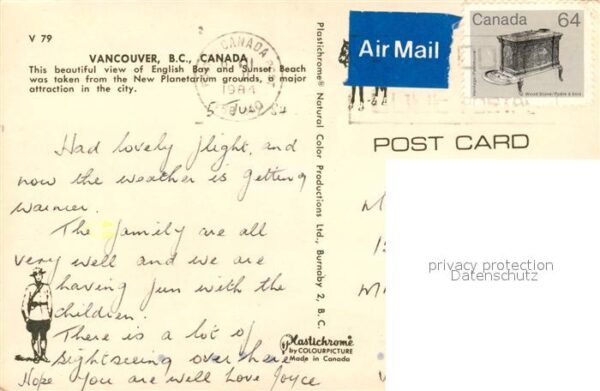 V 79
VANCOUVER, B.C., CANADA
This beautiful view of English Bay and Sunset Beach
was taken from the New Planetarium grounds, a major
attraction in the city.
CANADA POST
1984
Had lovely flight, and
now the weather is getting
warmer.
The family are all
very well and we are
having fun with the
children.
There is a lot of
sightseeing over here
Hope you are well Love Joyce
Plastichrome® Natural Color Productions Ltd., Burnaby 2, B. C.
Plastichrome®
by COLOURPICTURE
Made in Canada
Air Mail
Canada 64
Wood Stove/Poêle à bois
POST CARD
privacy protection
Datenschutz